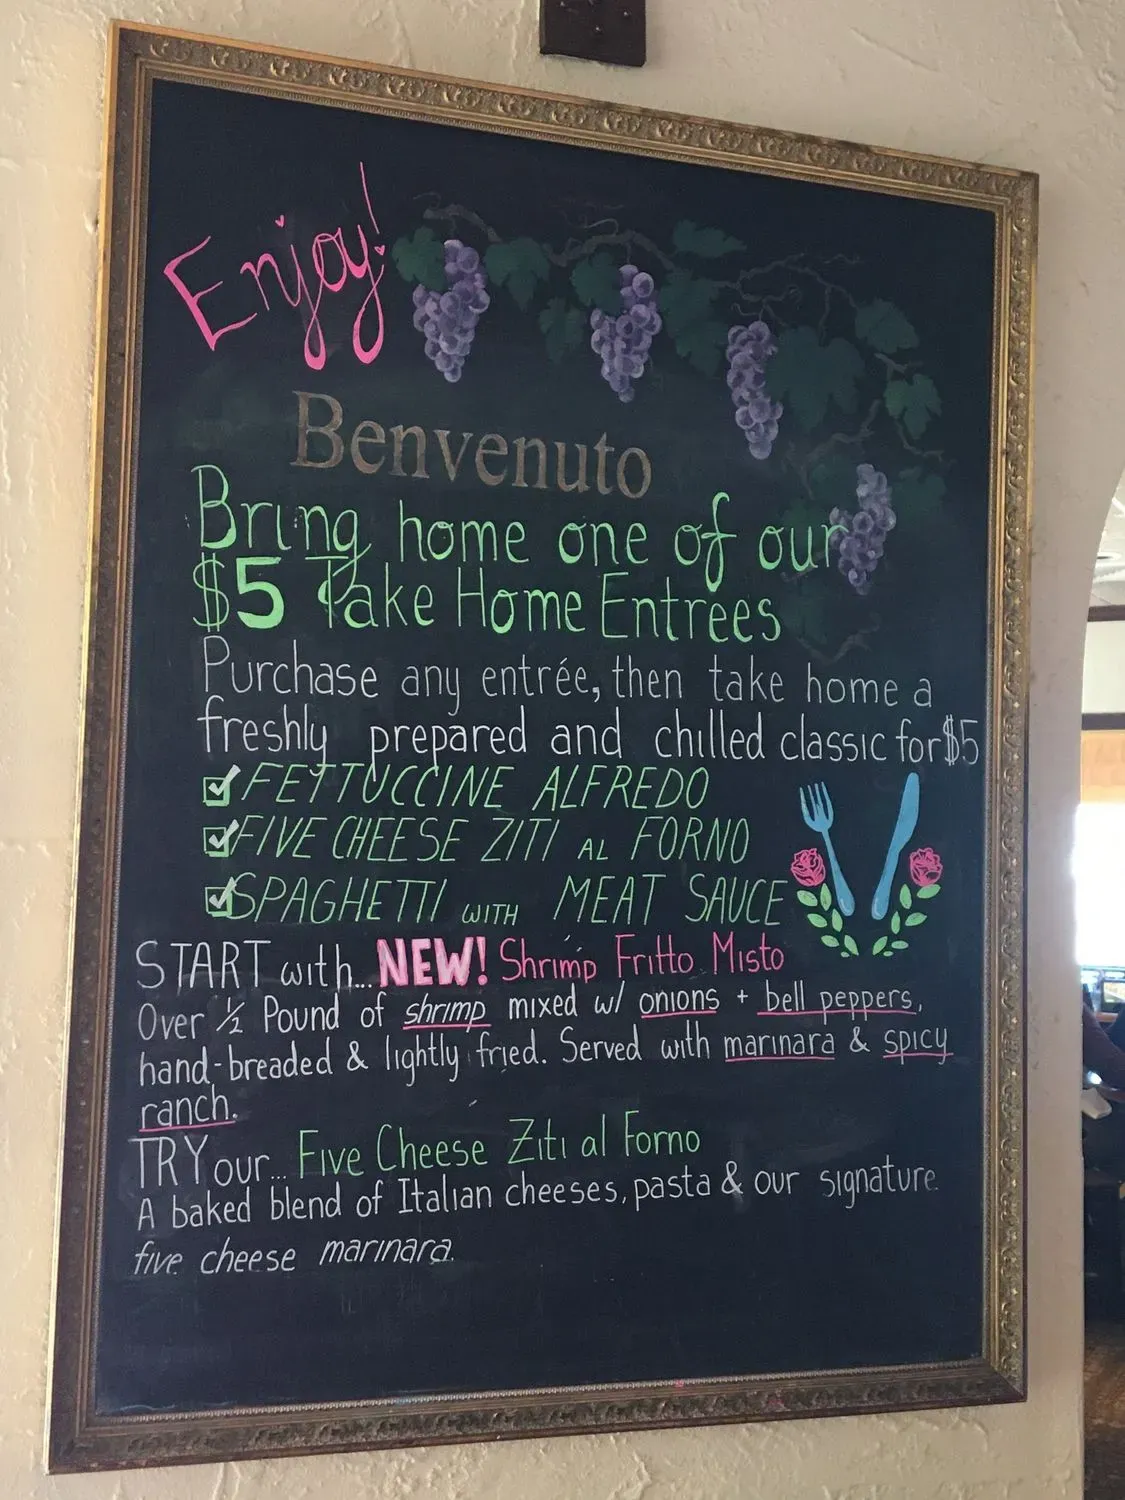 Enjoy!
Benvenuto
Bring home one of our
$5 Take Home Entrees
Purchase any entrée, then take home a
freshly prepared and chilled classic for $5
FETTUCCINE ALFREDO
FIVE CHEESE ZITI AL FORNO
SPAGHETTI WITH MEAT SAUCE
START with... NEW! Shrimp Fritto Misto
Over ½ Pound of shrimp mixed w/ onions + bell peppers,
hand-breaded & lightly fried. Served with marinara & spicy
ranch.
TRY our... Five Cheese Ziti al Forno
A baked blend of Italian cheeses, pasta & our signature
five cheese marinara.